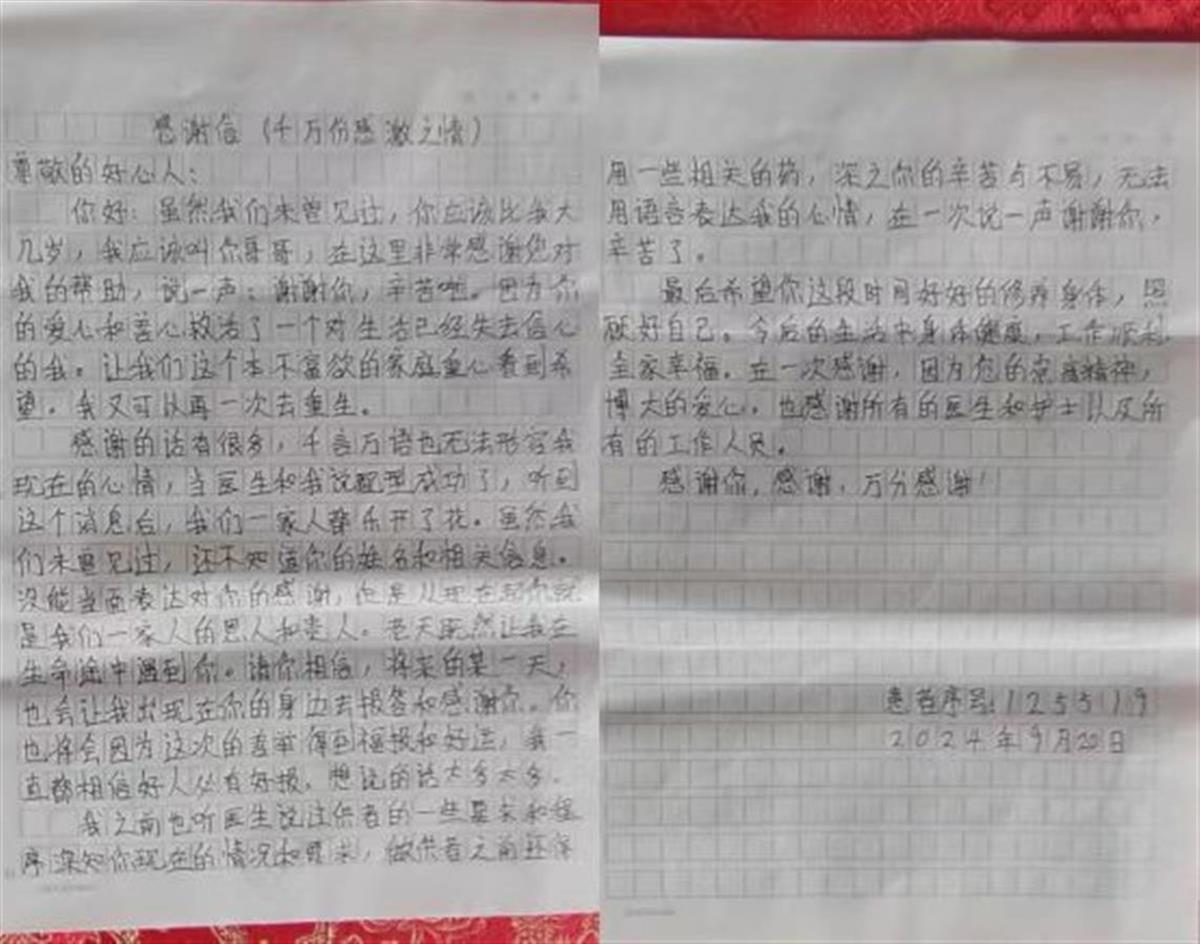 感谢信（千万份感激之情）
尊敬的好心人：
你好：虽然我们未曾见过，你应该比我大
几岁，我应该叫你哥哥，在这里非常感谢您对
我的帮助，说一声：谢谢你，辛苦啦。因为你
的爱心和善心救活了一个对生活已经失去信心
的我。让我们这个本不富欲的家庭重心看到希
望。我又可以再一次去重生。
感谢的话有很多，千言万语也无法形容我
现在的心情，当医生和我说配型成功了，听到
这个消息后，我们一家人都乐开了花。虽然我
们未曾见过，还不知道你的姓名和相关信息。
没能当面表达对你的感谢，但是从现在起你就
是我们一家人的恩人和贵人。老天既然让我在
生命途中遇到你。请你相信，将来的某一天，
也会让我出现在你的身边去报答和感谢你。你
也将会因为这次的善举得到福报和好运，我一
直都相信好人必有好报，想说的话太多太多。
我之前也听医生说过供者的一些要求和程
序深知你现在的情况和要求，做供者之前还得
用一些相关的药，深之你的辛苦与不易，无法
用语言表达我的心情，在一次说一声谢谢你，
辛苦了。
最后希望你这段时间好好的修养身体，照
顾好自己。今后的生活中身体健康，工作顺利，
全家幸福。在一次感谢，因为您的精神，
博大的爱心，也感谢所有的医生和护士以及所
有的工作人员。
感谢你，感谢，万分感谢！
患者序号：125519
2024年9月20日